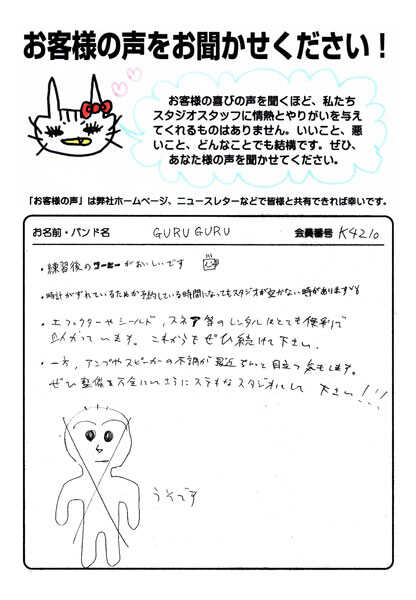 お客様の声をお聞かせください！
お客様の喜びの声を聞くほど、私たち
スタジオスタッフに情熱とやりがいを与え
てくれるものはありません。いいこと、悪
いこと、どんなことでも結構です。ぜひ、
あなた様の声を聞かせてください。
「お客様の声」は弊社ホームページ、ニュースレターなどで皆様と共有できれば幸いです。
お名前・バンド名 GURU GURU 会員番号 K4210
・練習後のコーヒーがおいしいです
・時計がずれているためか予約している時間になってもスタジオが空かない時があります
・エフェクターやシールド、スネア等のレンタルはとても便利で
助かっています。これからもぜひ続けて下さい。
・一方、アンプやスピーカーの不調が最近ちょいと目立つ気もします。
ぜひ整備を万全にしてさらにステキなスタジオにして下さい!!!
うそです